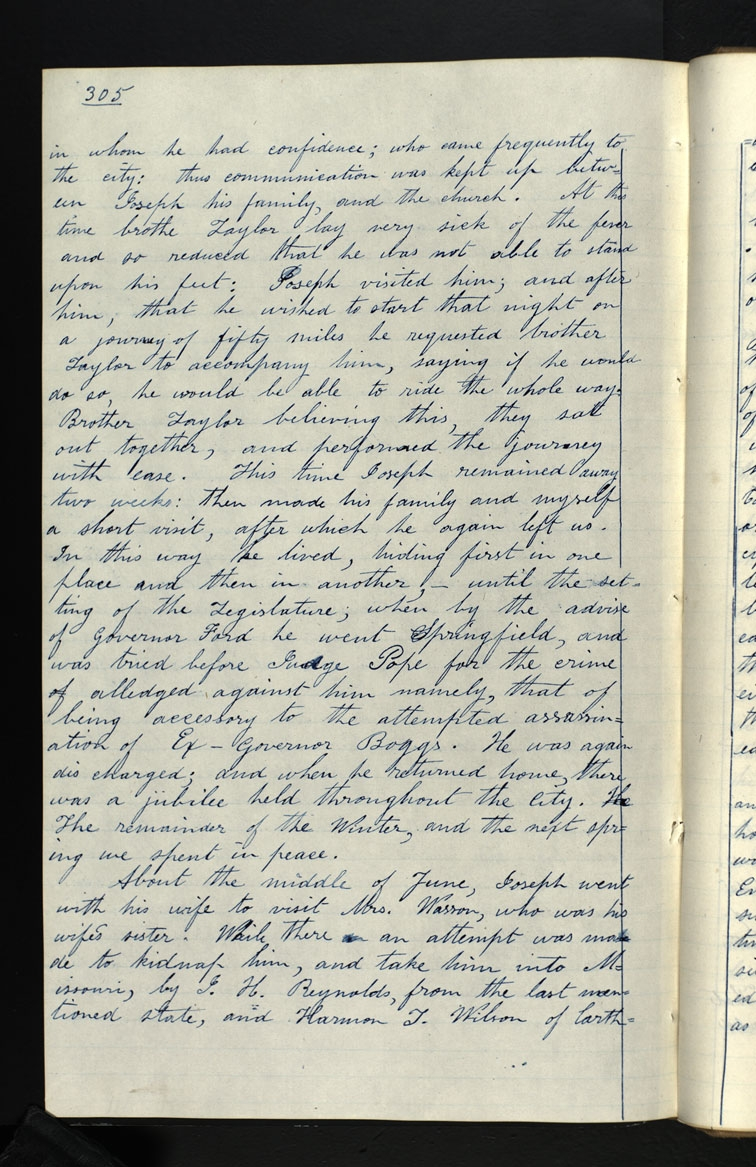 305
in whom he had confidence; who came frequently to
the city: thus communication was kept up betw=
een Joseph his family, and the church. At this
time brothe Taylor lay very sick of the fever
and so reduced that he was not able to stand
upon his feet: Joseph visited him; and after
him, that he wished to start that night on
a journey of fifty miles he requested brother
Taylor to accompany him, saying if he would
do so, he would be able to ride the whole way.
Brother Taylor believing this, they sat
out together, and performed the journey
with ease. This time Joseph remained away
two weeks: then made his family and myself
a short visit, after which he again left us.
In this way he lived, hiding first in one
place and then in another, — until the set-
ting of the Legislature; when by the advise
of Governor Ford he went Springfield, and
was tried before Judge Pope for the crime
of alledged against him namely, that of
being accessory to the attempted assassin=
ation of Ex-Governor Boggs. He was again
dis charged; and when he returned home, there
was a jubilee held throughout the City. He
The remainder of the Winter, and the next spr=
ing we spent in peace.
About the middle of June, Joseph went
with his wife to visit Mrs. Wasson, who was his
wifes sister. While there an attempt was ma
de to kidnap him, and take him into M=
issouri, by J. H. Reynolds, from the last men=
tioned state, and Harmon T. Wilson of Carth=